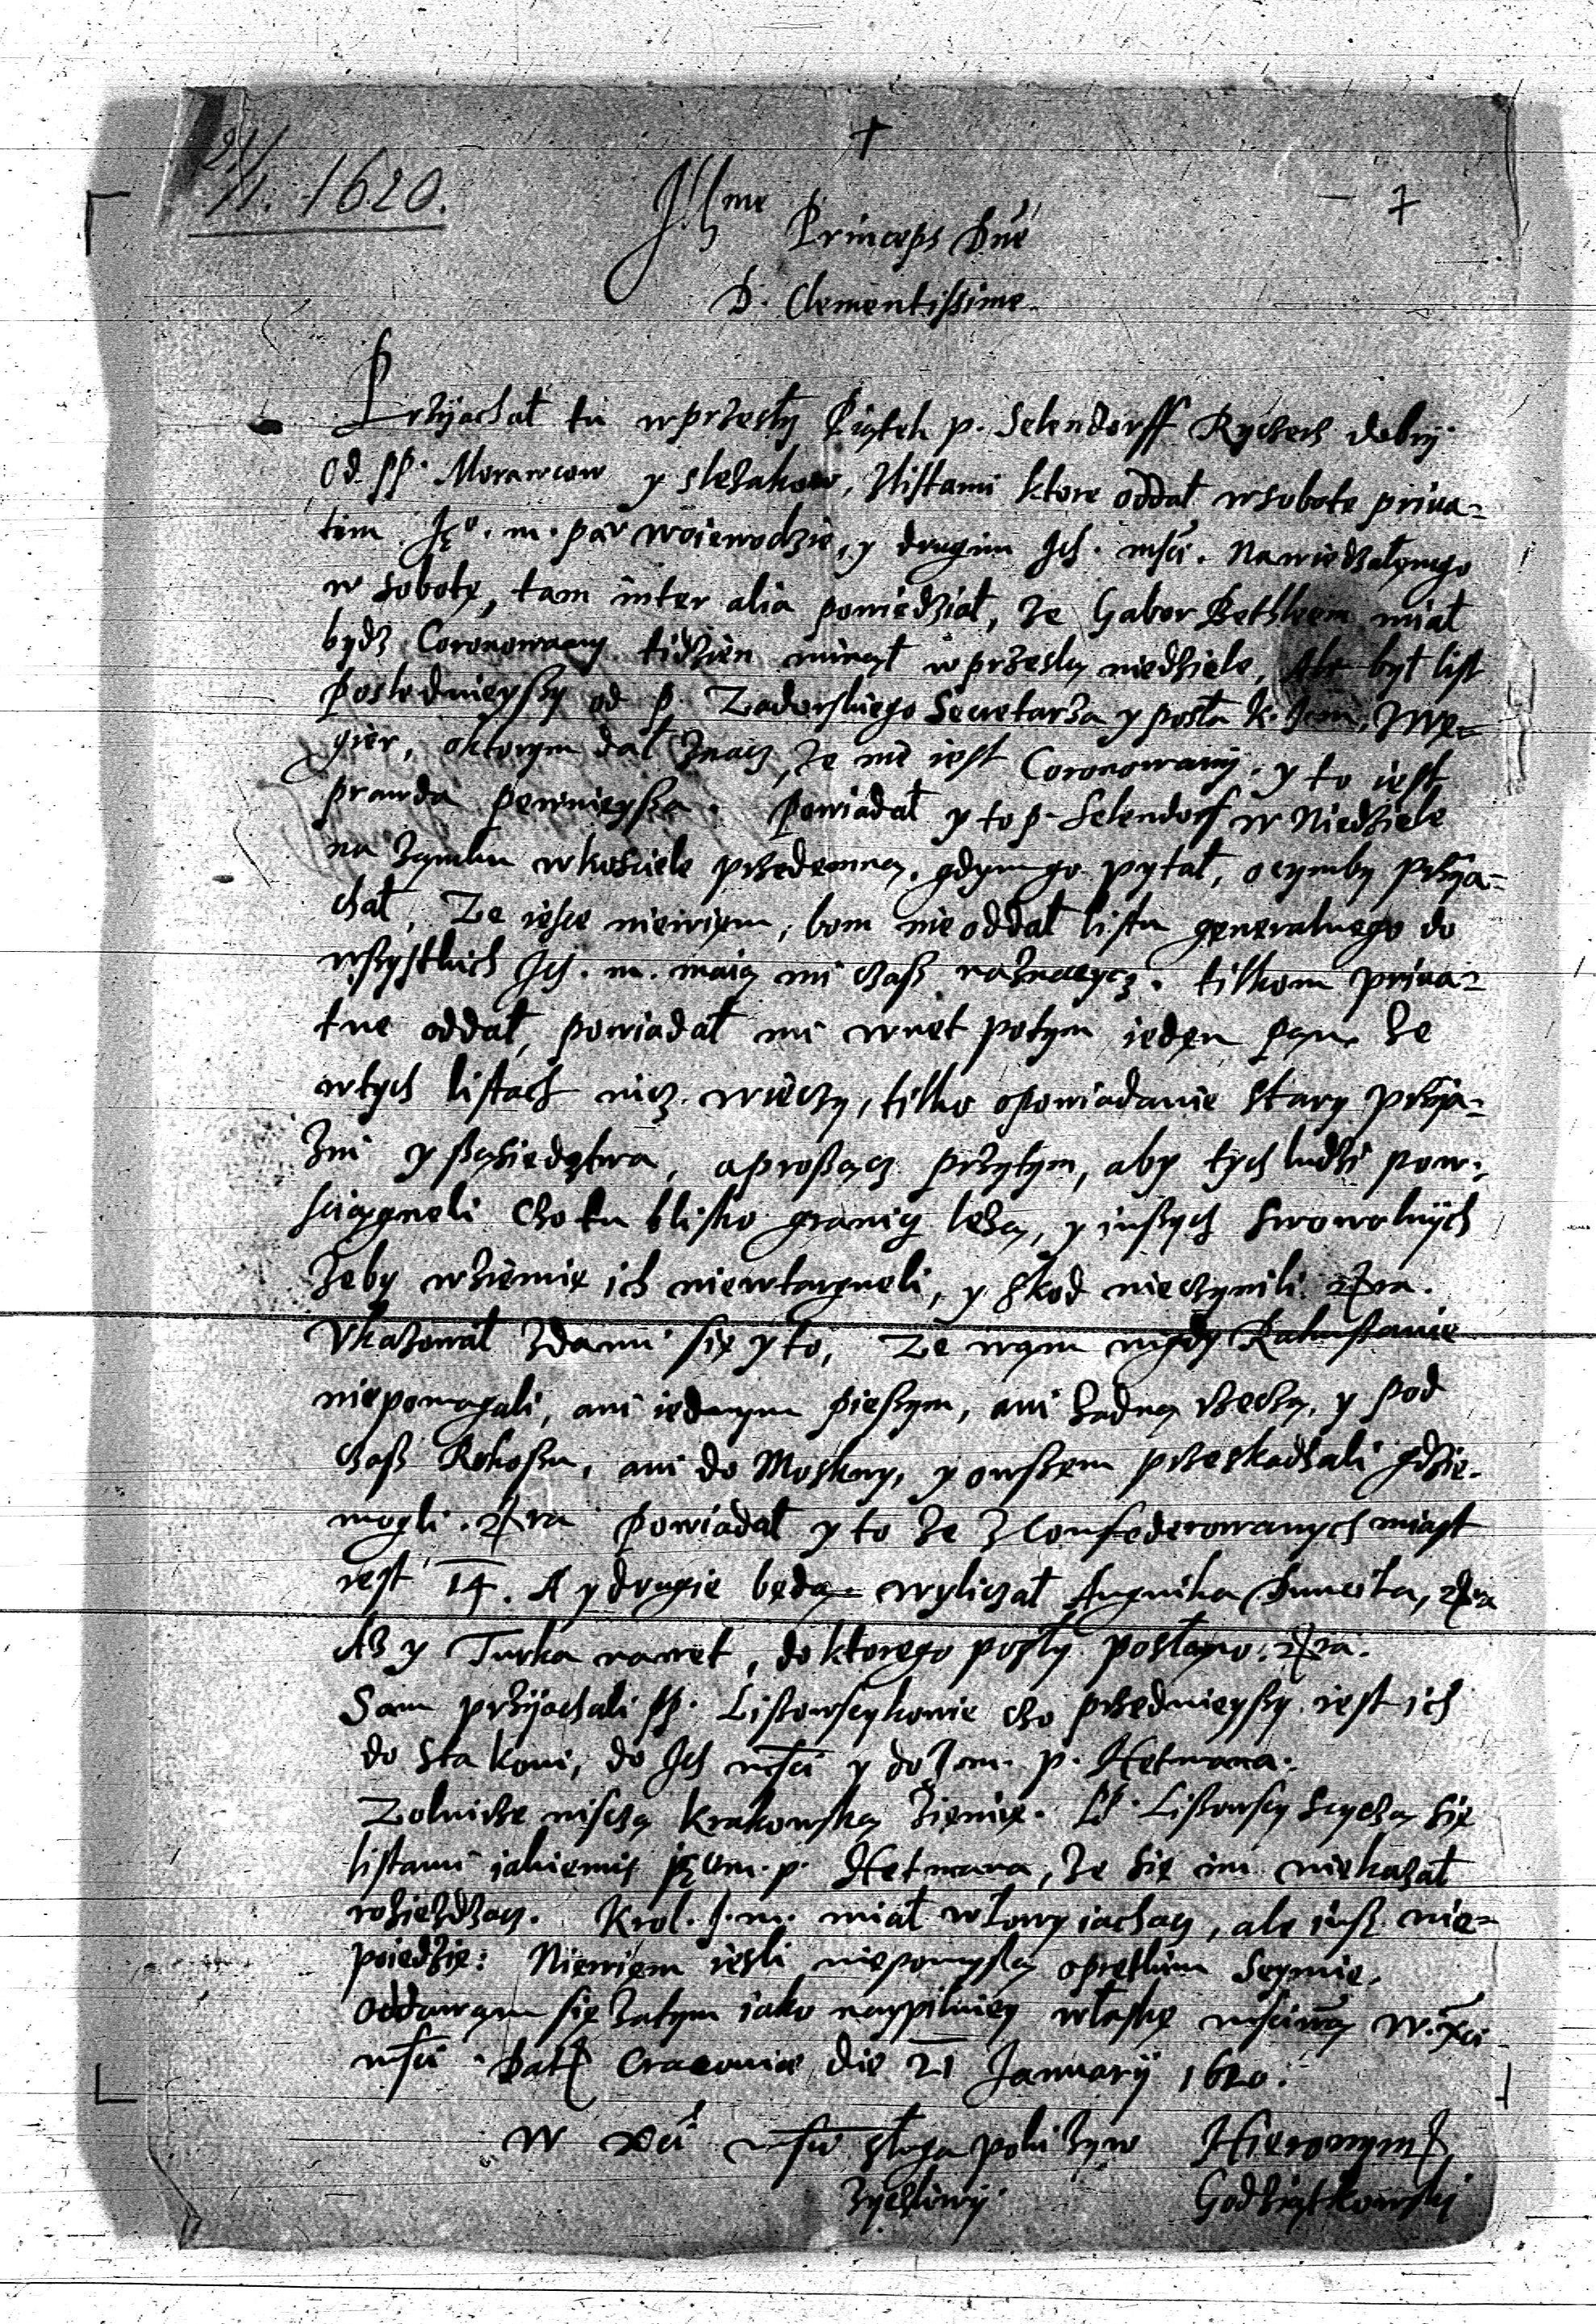 21/1. 1620.
Illme Princeps Dne
D. Clementissime.
Przÿachał tu w przesły Piątek p. Selendorff Rycerz dobrÿ
od PP. Morawcow y slezakow, Zlistami ktore oddał w sobote priua=
tim Jeo. m. panu woiewodzie, y drugim Ich. mści. Nawiedzałemgo
w sobotę, tam inter alia powiedział, że Gabor Bethleem miał
bydz Coronowany tidzien minął w przeslą niedziele, Ale był list
poslednieyszy od p. Zadorskiego Secretarza y posła K. Jem. z Wę=
gier, o ktorym dał znacz, że nie iest Coronowany. y to iest
prawda pewnieysza. Powiadał y to p. Selendorf w Niedziele
na zamku w kosciele przedemną, gdym go pytał, o czymby przÿa=
chał, Ze iesce niewiem, bom nie oddał listu generalnego do
wszystkich Ich. m. maią mi czasz naznaczycz. tilkom priua=
tne oddał, powiadał mi wnet potym ieden pan że
w tych listach nicz wieczy, tilko opowiadanie stary przÿa=
zni y sząsiedztwa, a proszącz przytym, aby tych ludzi pow=
sciągneli czo tu blisko granicz leżą, y inszych swowolnÿch
żeby w ziemię ich niewtargneli, y szkod nieczynili etra.
Vkazował zdami się y to, Ze wam nigdy Rakuszanie
niepomagali, ani iednym pieszym, ani żadną rzeczą, y pod
czasz Rokoszu, ani do Moskwy, y owszem przeskadzali gdzie
mogli. etra powiadał y to że z Confederowanych miast
iest 14. A y drugie będą wyliczał Anglika Duncika, etra
Aż y Turka nawet, do ktorego posły posłano. etra.
Sam przÿachali PP. Lisowscykowie czo przednieyszy iest ich
do sta koni, do Ich mści y do Jem. p. Hetmana.
Zolnirze niszczą krakowską ziemię. PP. Lisowscy szczycą się
listami iakiemis Jeom. p. Hetmana, że się im niekazał
roziezdzacz. Krol. J. m. miał w Łowy iachacz, ale iusz nie=
poiedzie: Niewiem iesli niepomyslą o prętkim Seymie,
oddawam się zatym iako naypilniey w łaskę mściwą W. Xci
mści. Dat Cracouiae die 21 Januarÿ 1620.
W Xci mści sługa poki żyw Hieronym
życzliwÿ Godziątkowski